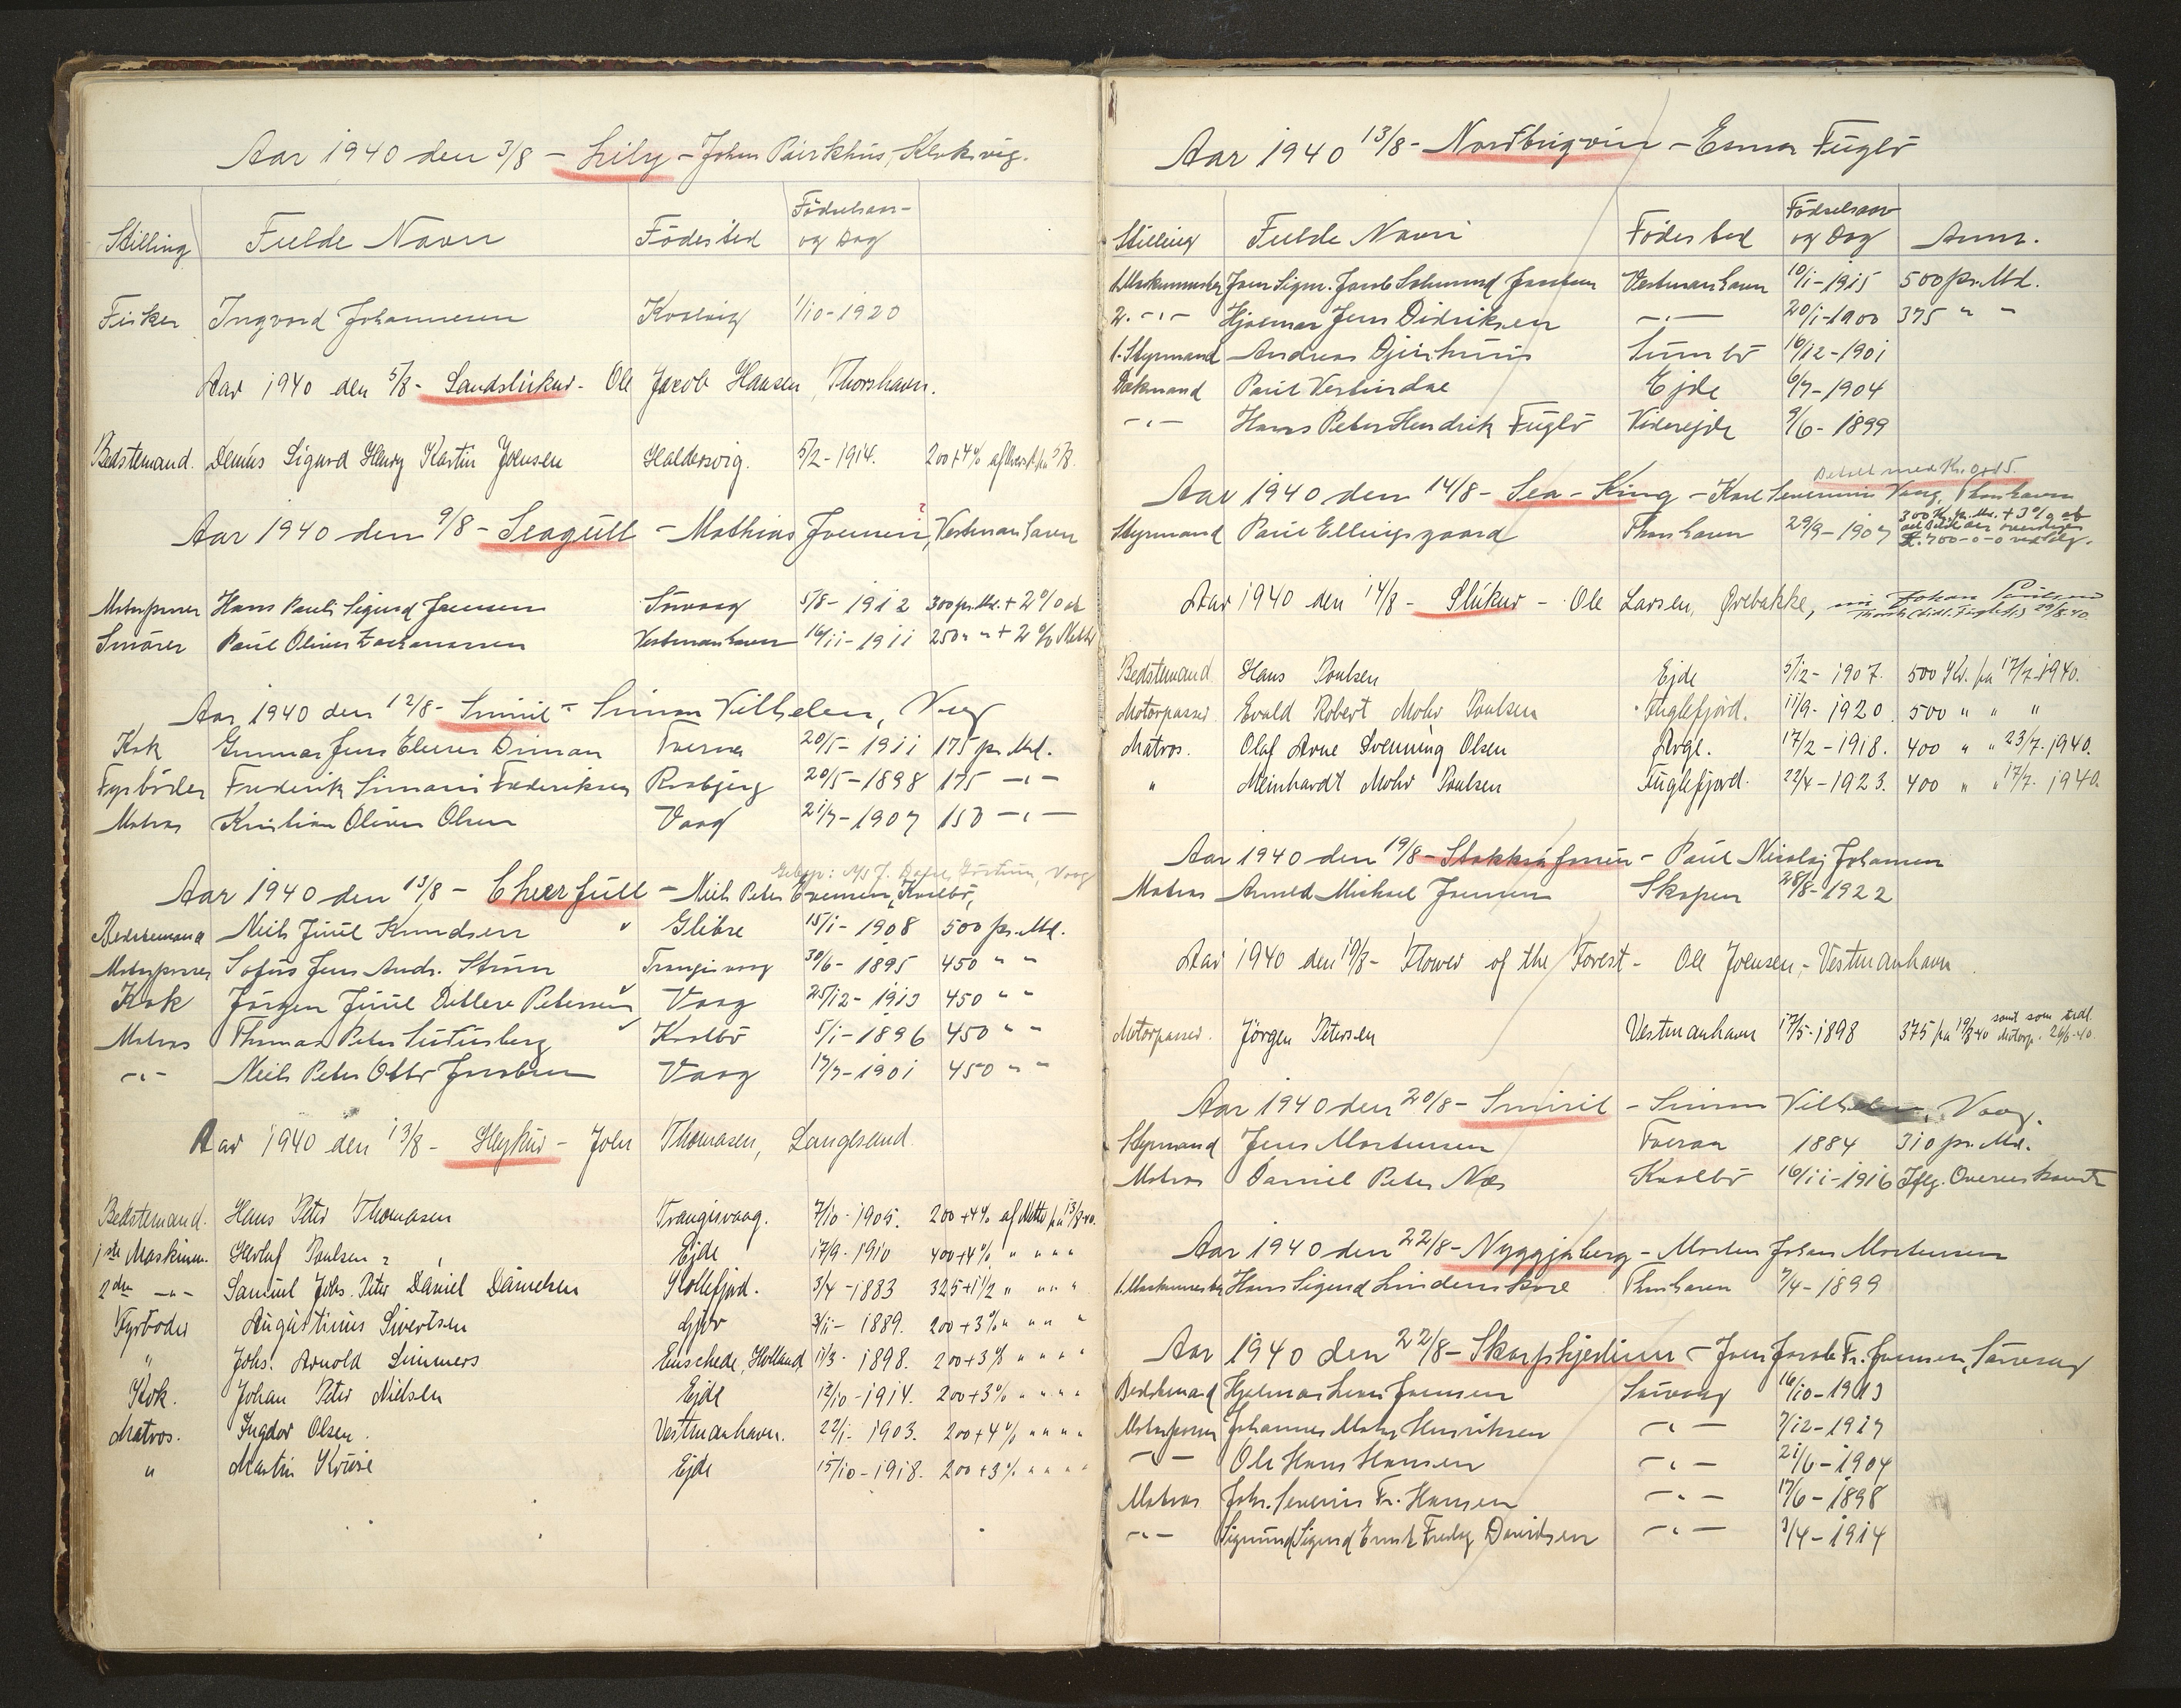 Aar 1940 den 3/8 - Lily - Johan
Stilling Fulde Navn Födested Födselsaar- og Dag
Fisker Ingvard Johannesen Kvalvig 1/10-1920
Aar 1940 den 5/8 - Landslukur - Ole Jacob Hansen, Thorshavn.
Bedstemand. Sigurd Henry Joensen Haldersvig. 5/2-1914. 200+4%
Aar 1940 den 9/8 - Seagull - Mathias Joensen, Vestmanhavn
Motorpasser Hans Pauli Sigurd Joensen Sörvaag 5/8-1912 300 pr. Md. + 2% af
Smörer Paul Oliver Zachariassen Vestmanhavn 16/11-1911 250 " " + 2% Netto
Aar 1940 den 12/8 - Smiril - Simon Vilhelm, Vaag
Kok Gunnar Jens Dimon Tveraa 20/5-1911 175 pr. Md.
Fyrböder Frederik Simoni Frederiksen 20/5-1898 175 -"-
Matros Kristian Oliver Olsen Vaag 21/7-1907 150 -"-
Aar 1940 den 13/8 - Cheerfull - Niels Peter Evensen, Kvalbö,
Bedstemand Niels Juul Knudsen Glibre 15/1-1908 500 pr. Md.
Motorpasser Sofus Jens Andr. Ström Trangisvaag 30/6-1895 450 " "
Kok Jörgen Juul Ditlev Petersen Vaag 25/12-1913 450 " "
Matros Thomas Peter Kvalbö 5/1-1896 450 " "
-"- Niels Peter Otto Jacobsen Vaag 17/7-1901 450 " "
Aar 1940 den 13/8 - Heykur - John Thomasen, Langesand.
Bedstemand. Hans Peter Thomasen Trangisvaag. 7/10-1905. 200+4% af Netto fra 13/8-40.
1ste Maskinm. Herluf Poulsen Ejde 17/9-1910 400+4% " " " "
2den -"- Samuel Johs. Peter Daniel Danielsen Kollefjord. 3/4-1883 325+1 1/2 " " " "
Fyrböder Augustinus Sivertsen Gjov 3/1-1889. 200+3% " " " "
" Johs. Arnold Simmers Enschede, Holland 11/3-1898. 200+3% " " " "
Kok. Johan Peter Nielsen Ejde 12/10-1914. 200+3% " " " "
Matros. Ingdor Olsen. Vestmanhavn. 22/1-1903. 200+4% " " " "
" Martin Kruse Ejde 15/10-1918. 200+3% " " " "
Aar 1940 13/8 - Nordbugvin - Fuglö
Stilling Fulde Navn Födested Födselsaar og Dag Anm.
1. Maskinmester Jacobsen Vestmanhavn 10/1-1915 500 pr. Md.
2. -"- Hjalmar Jens Didriksen -"- 20/1-1900 375 " "
1. Styrmand Andreas Djurhuus Sumbö 16/12-1901
Dækmand Paul Vesturdal Ejde 6/7-1904
-"- Hans Peter Hendrik Fuglö Viderejde 9/6-1899
Aar 1940 den 14/8 - Sea-King - Karl Severinus Vang, Thorshavn
Styrmand Paul Ellingsgaard Thorshavn 29/9-1907 300 Kr. pr. Md. + 3% af
Aar 1940 den 14/8 - Slukur - Ole Larsen, Örebakke,
Bedstemand Hans Poulsen Ejde 5/12-1907. 500 Kr. fra 17/7-1940.
Motorpasser Evald Robert Mohr Poulsen Fuglefjord. 11/9-1920. 500 " " "
Matros. Olaf Arne Svenning Olsen Arge. 17/2-1918. 400 " " 23/7-1940.
" Meinhardt Mohr Poulsen Fuglefjord. 22/4-1923. 400 " " 17/7-1940.
Aar 1940 den 19/8 - - Paul Nicolaj Johansen
Matros Arnold Michael Joensen Skopen 28/8-1922
Aar 1940 den 19/8 - Flower of the Forest - Ole Joensen, - Vestmanhavn
Motorpasser. Jörgen Petersen Vestmanhavn 17/5-1898 375 fra 19/8-40 samt som
Aar 1940 den 20/8 - Smiril - Simon Vilhelm, Vaag.
Styrmand Jens Mortensen Tveraa 1884 310 pr. Md.
Matros Daniel Peter Næs Kvalbö 16/11-1916 Iflg. Overenskomst
Aar 1940 den 22/8 - Nyggjaberg - Morten Johan Mortensen
1. Maskinmester Hans Sigurd Lindenskov Thorshavn 7/4-1899
Aar 1940 den 22/8 - - Joen Jacob Fr. Joensen, Sörvaag
Bedstemand Hjalmar Joensen Sörvaag 16/10-1913
Motorpasser Johannes Mohr Henriksen -"- 7/12-1917
-"- Ole Hans Hansen -"- 21/6-1904
Matros Johs. Severin Fr. Hansen -"- 17/6-1898
-"- Sigmund Sigurd Davidsen -"- 3/4-1914